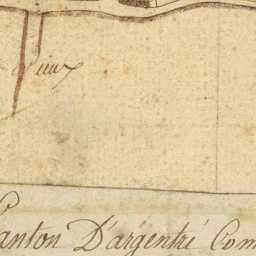 Canton D'argentré Com